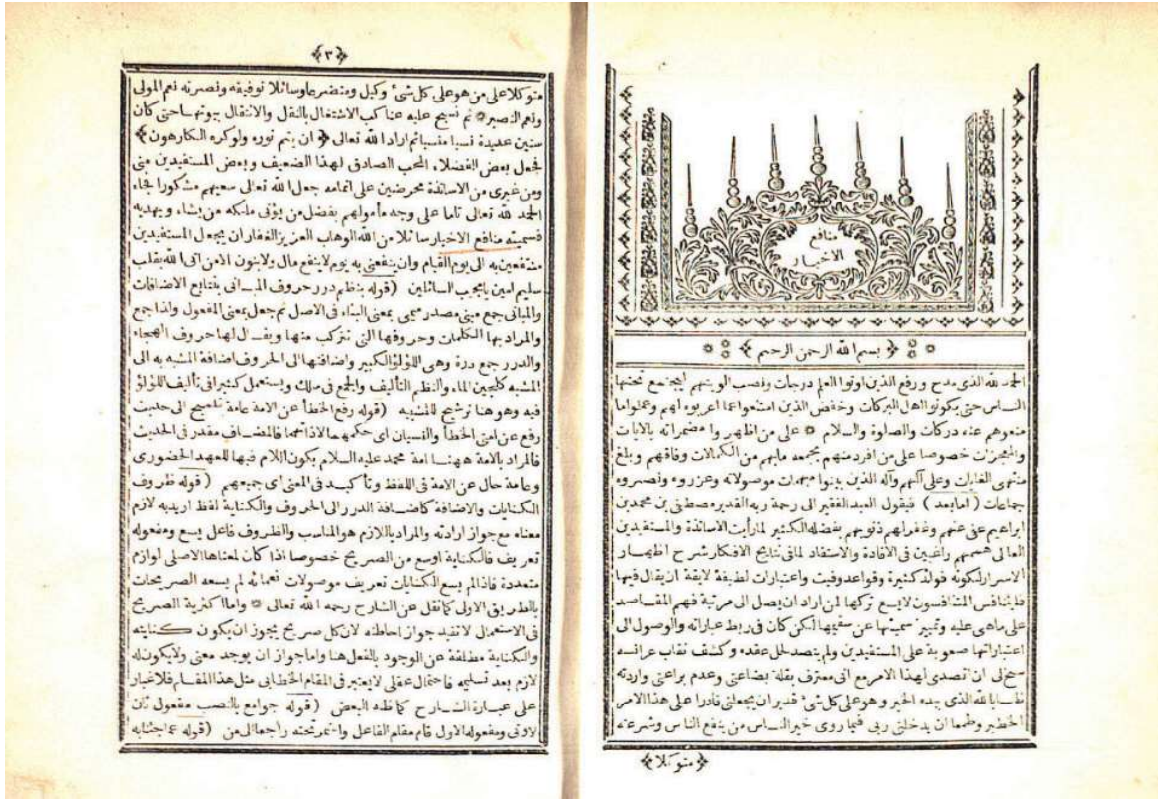 منافع
الاخيار
﴿ بسم الله الرحمن الرحيم ﴾
الحمد لله الذى مدح ورفع الذين اوتوا العلم درجات ونصب الويتهم ليجتمع تحتها
الناس حتى يكونوا اهل البركات وخفض الذين امتنعوا عما اعربوه لهم وعملوا ما
منعوهم عنه دركات والصلوة والسلام * على من اظهر وا مضمراته بالايات
والمعجزات خصوصا على من افرد منهم بجمعه مابهم من الكمالات وفاقهم وبلغ
منتهى الغايات وعلى آلهم وآله الذين بينوا مبهمات موصولاته وعزروه ونصروه
جماعات ( اما بعد ) فيقول العبد الفقير الى رحمة ربه القدير مصطفى بن محمد بن
ابراهيم عفى عنهم وغفر لهم ذنوبهم بفضله الكثير لما رأيت الاساتذة والمستفيدين
العالى هممهم راغبين فى الافادة والاستفاد لمافى نتايج الافكار شرح اظهار
الاسرار لكونه فوائد كثيرة وقواعد وفيت واعتبارات لطيفة لايقة ان يقال فيها
فليتنافس المتنافسون لايسع تركها لمن اراد ان يصل الى مرتبة فهم المقاصد
على ماهى عليه وتمييز سمينها عن سقيمها لكن كان فى ربط عباراته والوصول الى
اعتباراتها صعوبة على المستفيدين ولم يتصد لحل عقده وكشف نقاب عرائسه
سنح لى ان تصدى لهذا الامر مع انى معترف بقلة بضاعتى وعدم براعتى واردته
طالبا لله الذى بيده الخير وهو على كل شئ قدير ان يجعلنى قادرا على هذا الامر
الخطير وطمعا ان يدخلنى ربى فيما روى خير الناس من ينفع الناس وشرعته
﴿ متوكلا ﴾
﴿٣﴾
متوكلا على من هو على كل شئ وكيل ومتضرعا وسائلا توفيقه ونصرته نعم المولى
ونعم النصير * ثم نسج عليه عناكب الاشتغال بالنقل والانتقال بيوتها حتى كان
سنين عديدة نسيا منسيا ثم اراد الله تعالى ﴿ ان يتم نوره ولو كره الكارهون ﴾
فجعل بعض الفضلاء المحب الصادق لهذا الضعيف وبعض المستفيدين منى
ومن غيرى من الاساتذة محرضين على اتمامه جعل الله تعالى سعيهم مشكورا فجاء
الحمد لله تعالى تاما على وجه مأمولهم بفضل من يؤتى ملكه من يشاء ويهديه
فسميته منافع الاخيار سائلا من الله الوهاب العزيز الغفار ان يجعل المستفيدين
منتفعين به الى يوم القيام وان ينفعنى به يوم لاينفع مال ولابنون الا من اتى الله بقلب
سليم امين يامجيب السائلين ( قوله بنظم درر حروف المبانى بتتابع الاضافات
والمبانى جمع مبنى مصدر ميمى بمعنى البناء فى الاصل ثم جعل بمعنى المفعول ولذا جمع
والمراد بها الكلمات وحروفها التى تتركب منها ويقال لها حروف الهجاء
والدرر جمع درة وهى اللؤلؤ الكبير واضافتها الى الحروف اضافة المشبه به الى
المشبه كلجين الماء والنظم التأليف والجمع فى سلك ويستعمل كثيرا فى تأليف اللؤلؤ
فيه وهو هنا ترشيح للمشبه ( قوله رفع الخطأ عن الامة عامة تلميح الى حديث
رفع عن امتى الخطأ والنسيان اى حكمهما لا ذاتهما فالمضاف مقدر فى الحديث
فالمراد بالامة ههنا امة محمد عليه السلام يكون اللام فيها للعهد الحضورى
وعامة حال عن الامة فى اللفظ وتأكيد فى المعنى اى جميعهم ( قوله ظروف
الكنايات والاضافة كاضافة الدرر الى الحروف والكناية لفظ اريد به لازم
معناه مع جواز ارادته والمراد باللازم هو المناسب والظروف فاعل يسع ومفعوله
تعريف فالكناية اوسع من الصريح خصوصا اذا كان لمعناها الاصلى لوازم
متعددة فاذا لم يسع الكنايات تعريف موصولات نعمائه لم يسعه الصريحات
بالطريق الاولى كما نقل عن الشارح رحمه الله تعالى * واما اكثرية الصريح
فى الاستعمال لاتفيد جواز احاطته لان كل صريح يجوز ان يكون كنايته
والكناية مطلقة عن الوجود بالفعل هنا واما جواز ان يوجد معنى ولايكون له
لازم بعد تسليمه فاحتمال عقلى لايعتبر فى المقام الخطابى مثل هذا المقام فلاغبار
على عبارة الشارح كما ظنه البعض ( قوله جوامع بالنصب مفعول ثان
لاوتى ومفعوله الاول قام مقام الفاعل واستترتحته راجعا الى من ( قوله عما جئنابه